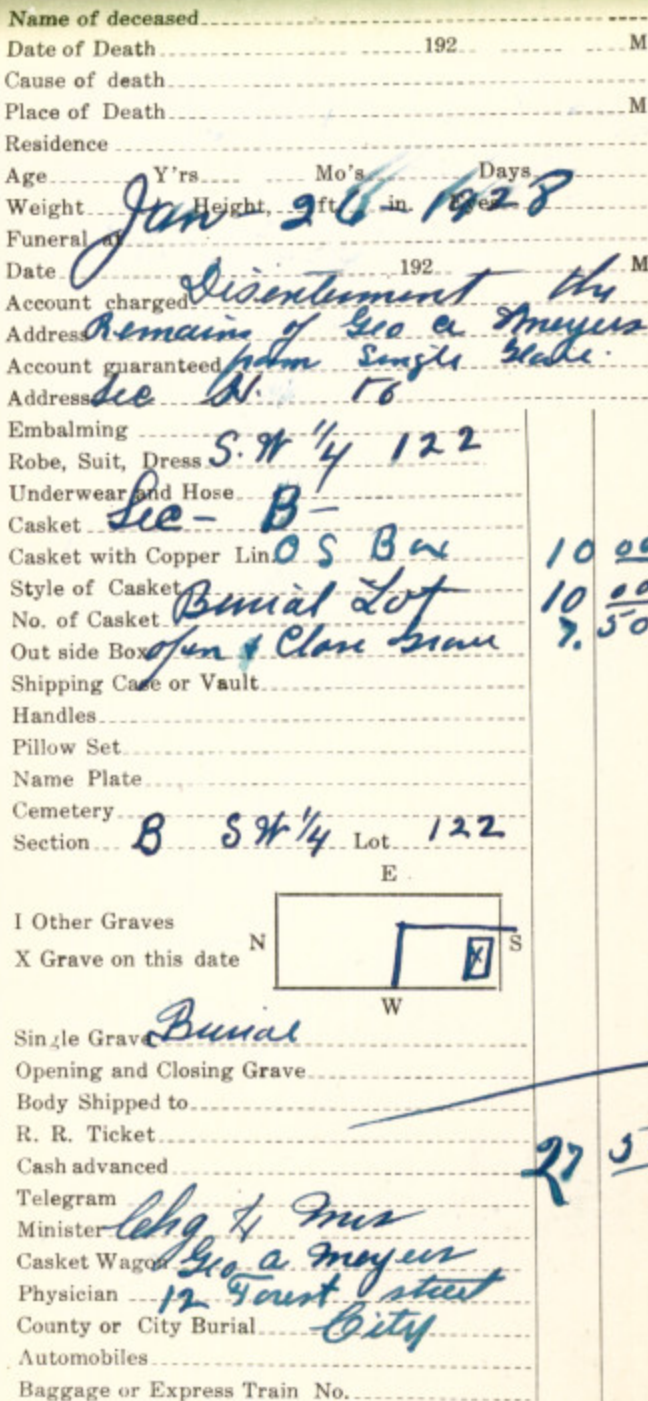 Name of deceased
Date of Death 192 M
Cause of death
Place of Death M
Residence
Age Y'rs Mo's Days
Weight Height, ft. in
Jan - 26 - 1928
Funeral at
Date 192 M
Account charged Disenterment the
Address Remains of Geo a Meyers
Account guaranteed from Single Grave.
Address Sec N.
Embalming
Robe, Suit, Dress S. W 1/4 122
Underwear and Hose
Casket Sec - B -
Casket with Copper Lin. O S Box 10 00
Style of Casket
No. of Casket Burial Lot 10 00
Out side Box open & Close Grave 7. 50
Shipping Case or Vault
Handles
Pillow Set
Name Plate
Cemetery
Section B S W 1/4 Lot 122
E
I Other Graves
N S
X Grave on this date X
W
Single Grave Burial
Opening and Closing Grave
Body Shipped to
R. R. Ticket
Cash advanced 27 5
Telegram
Minister Chg to Mrs
Casket Wagon Geo a Meyers
Physician 12 Forest street
County or City Burial City
Automobiles
Baggage or Express Train No.